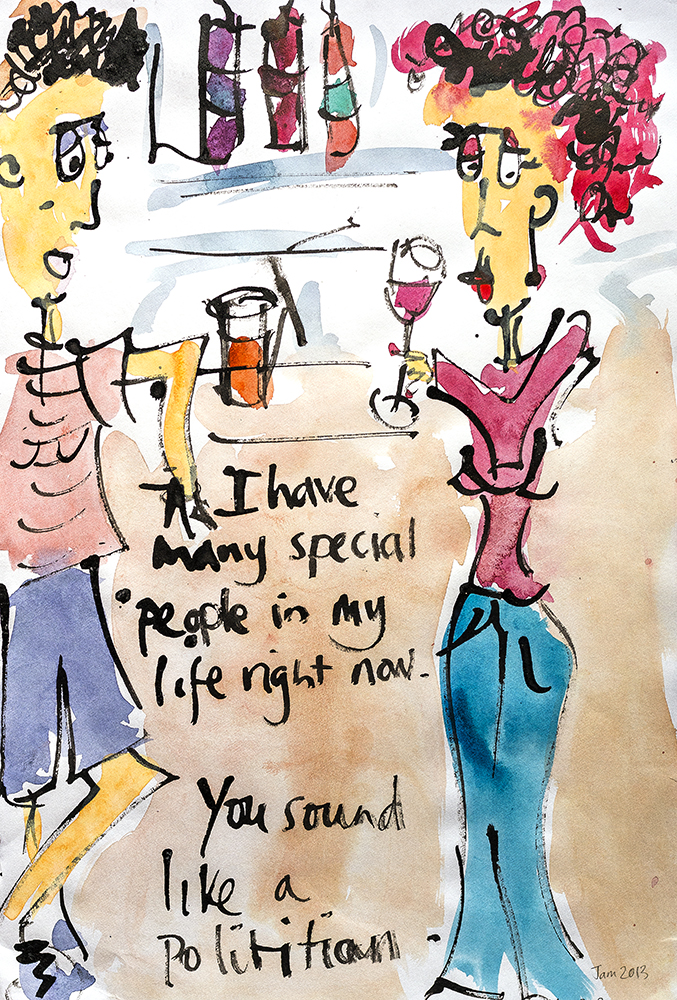 I have
many special
people in my
life right now.
You sound
like a
polititian
Jam 2013